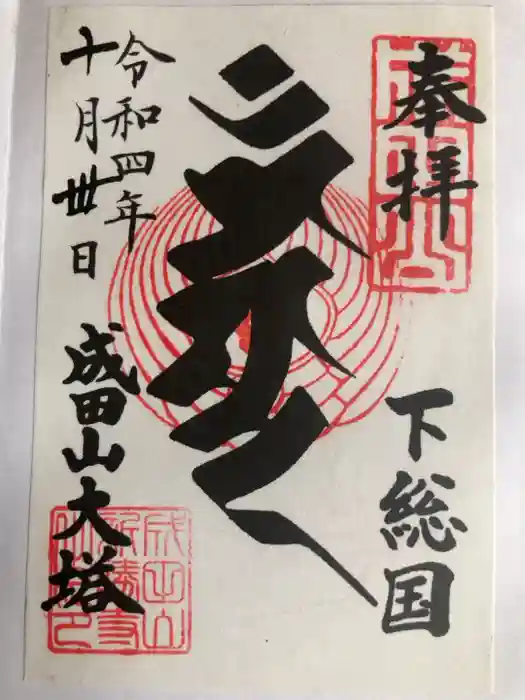 奉拝
下総国
令和四年
十月卅日
成田山大塔
成田山
新勝寺